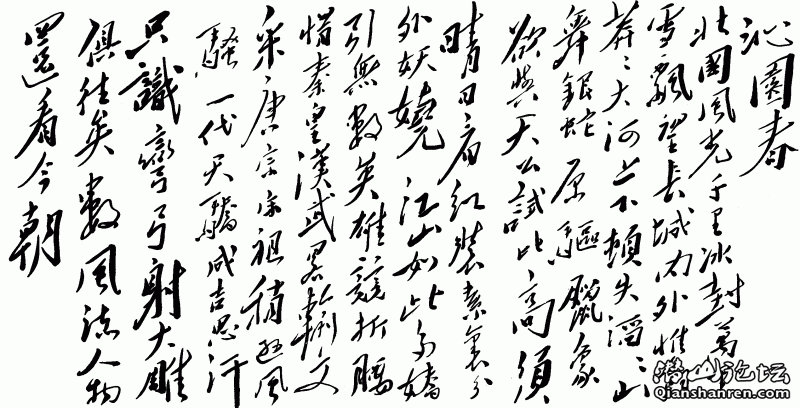 沁園春
北國風光千里冰封萬里
雪飄望長城內外惟餘
莽〻大河上下頓失滔〻山
舞銀蛇原驅臘象
欲與天公試比高須
晴日看紅裝素裹分
外妖嬈江山如此多嬌
引無數英雄競折腰
惜秦皇漢武略輸文
采唐宗宋祖稍遜風
騷一代天驕成吉思汗
只識彎弓射大雕
俱往矣數風流人物
還看今朝
潜山论坛
Qianshanren.com